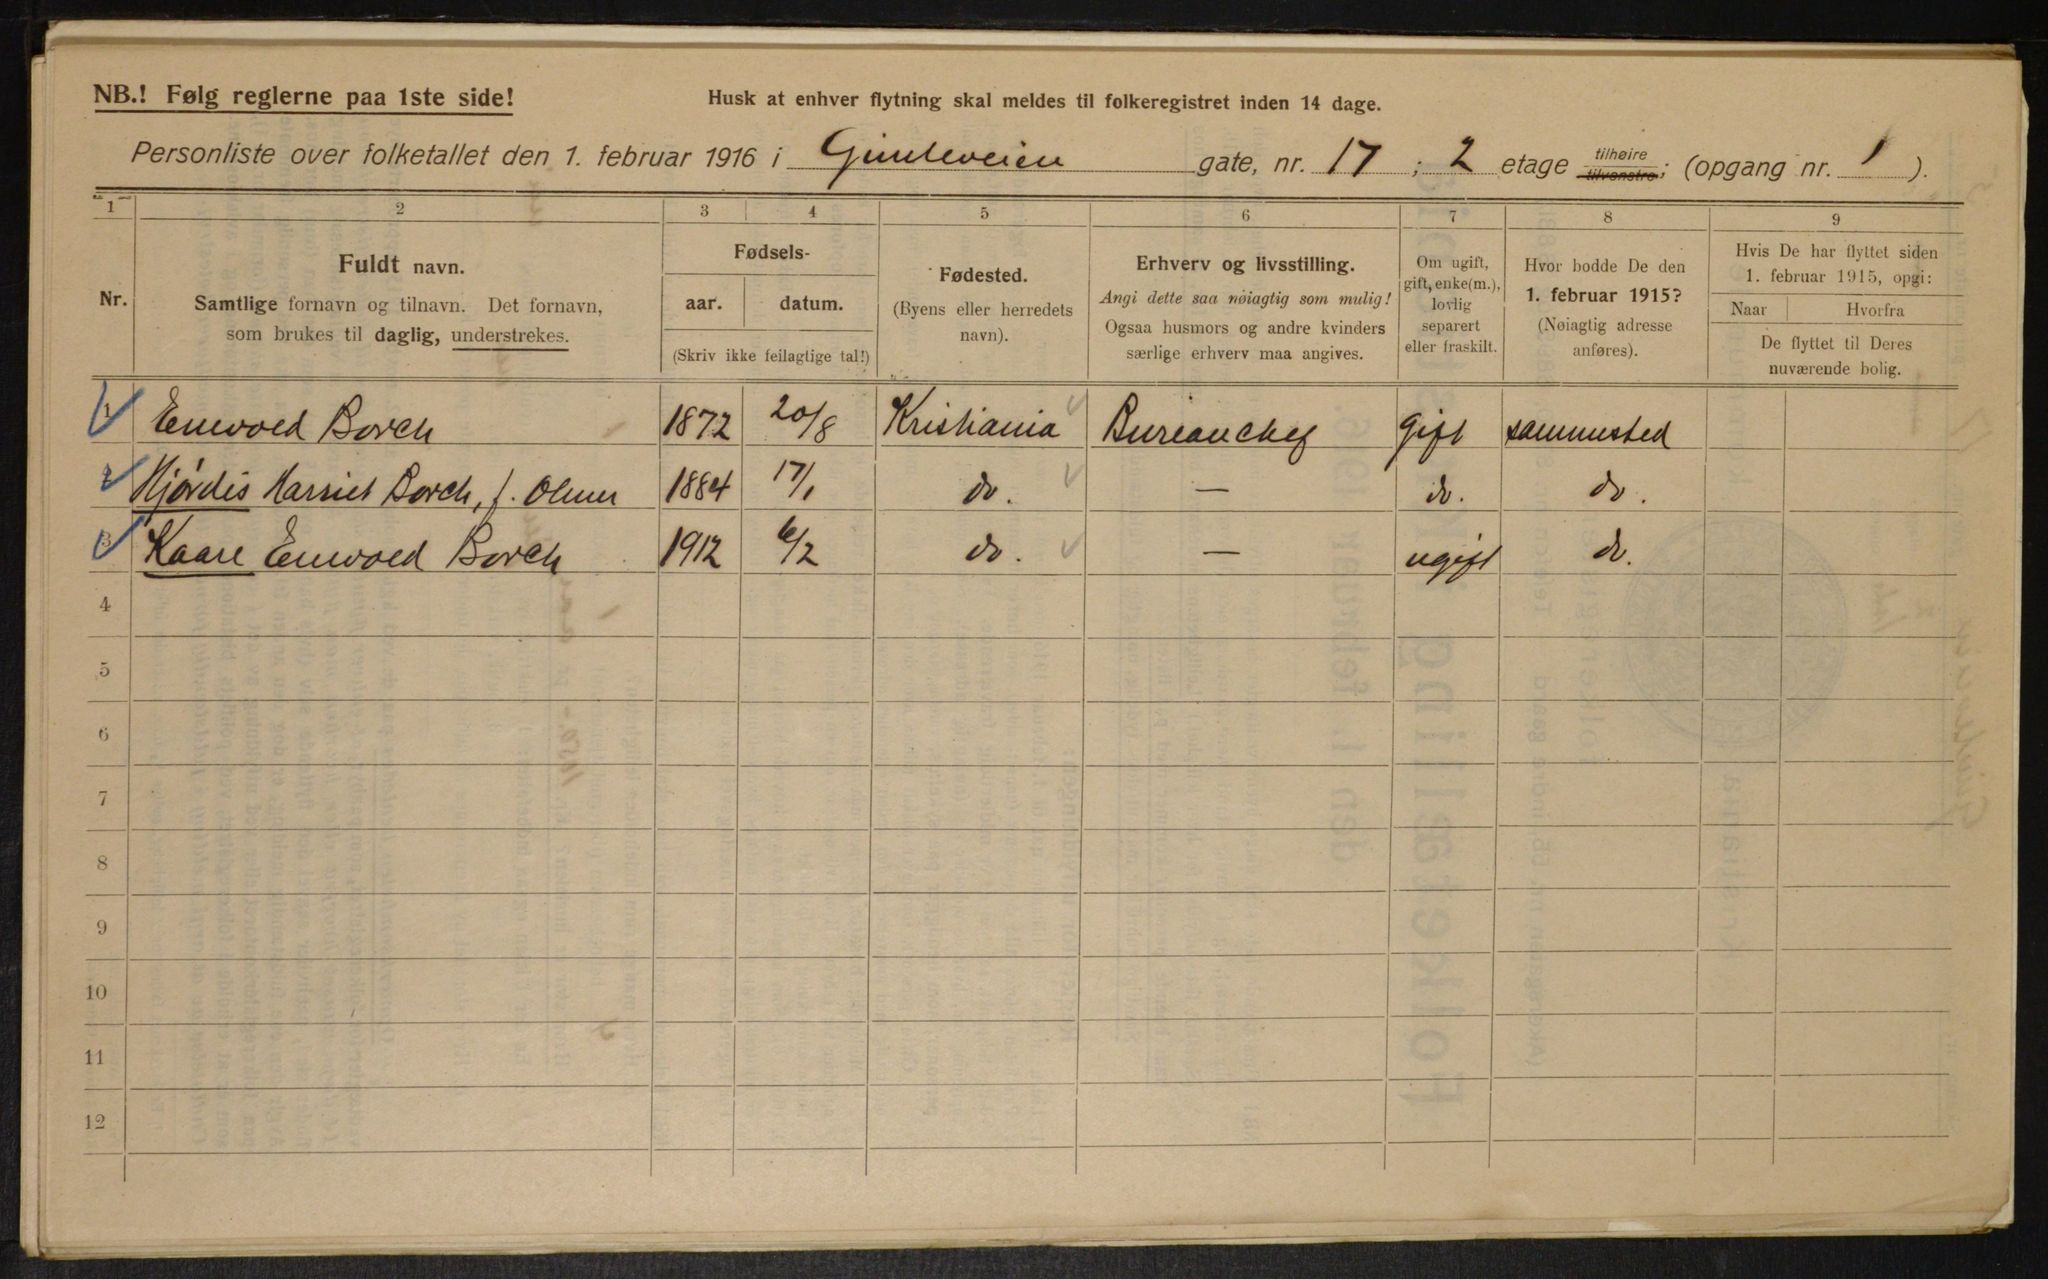 NB.! Følg reglerne paa 1ste side!
Husk at enhver flytning skal meldes til folkeregistret inden 14 dage.
Personliste over folketallet den 1. februar 1916 i Gimleveien gate, nr. 17 ; 2 etage tilhøire tilvenstre; (opgang nr. 1 ).
1 2 3 4 5 6 7 8 9
Nr.
Fuldt navn.
Samtlige fornavn og tilnavn. Det fornavn,
som brukes til daglig, understrekes.
Fødsels-
aar. datum.
(Skriv ikke feilagtige tal!)
Fødested.
(Byens eller herredets
navn).
Erhverv og livsstilling.
Angi dette saa nøiagtig som mulig!
Ogsaa husmors og andre kvinders
særlige erhverv maa angives.
Om ugift,
gift, enke(m.),
lovlig
separert
eller fraskilt.
Hvor bodde De den
1. februar 1915?
(Nøiagtig adresse
anføres).
Hvis De har flyttet siden
1. februar 1915, opgi:
Naar Hvorfra
De flyttet til Deres
nuværende bolig.
1 Enevold Borch 1872 20/8 Kristiania Bureauchef gift sammested
2 Hjørdis Harriet Borch, f. 1884 17/1 do. — do. do.
3 Kaare Enevold Borch 1912 6/2 do. — ugift do.
4
5
6
7
8
9
10
11
12